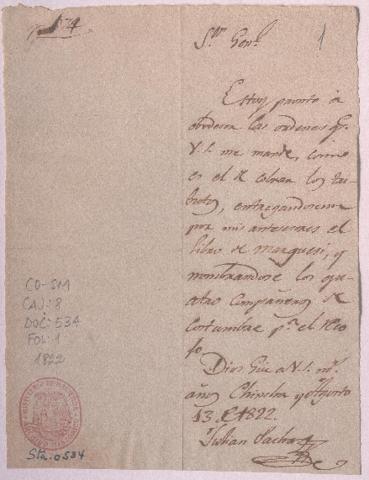 1
Sor. Genl.
Estoy pronto a
obedecer las ordenes qe.
V.S. me mande, como
es el de cobrar los tri-
butos, entregandoseme
por mis antesesores el
libro de margesi, y
nombrandose los qu-
atro compañeros de
costumbre pa. el
Dios Gue a V.S. ms.
años Chincha y Agosto
13 de 1822.
Julian Sacha
CO-SM
CAJ: 8
DOC: 534
FOL: 1
1822
Sta. 0534